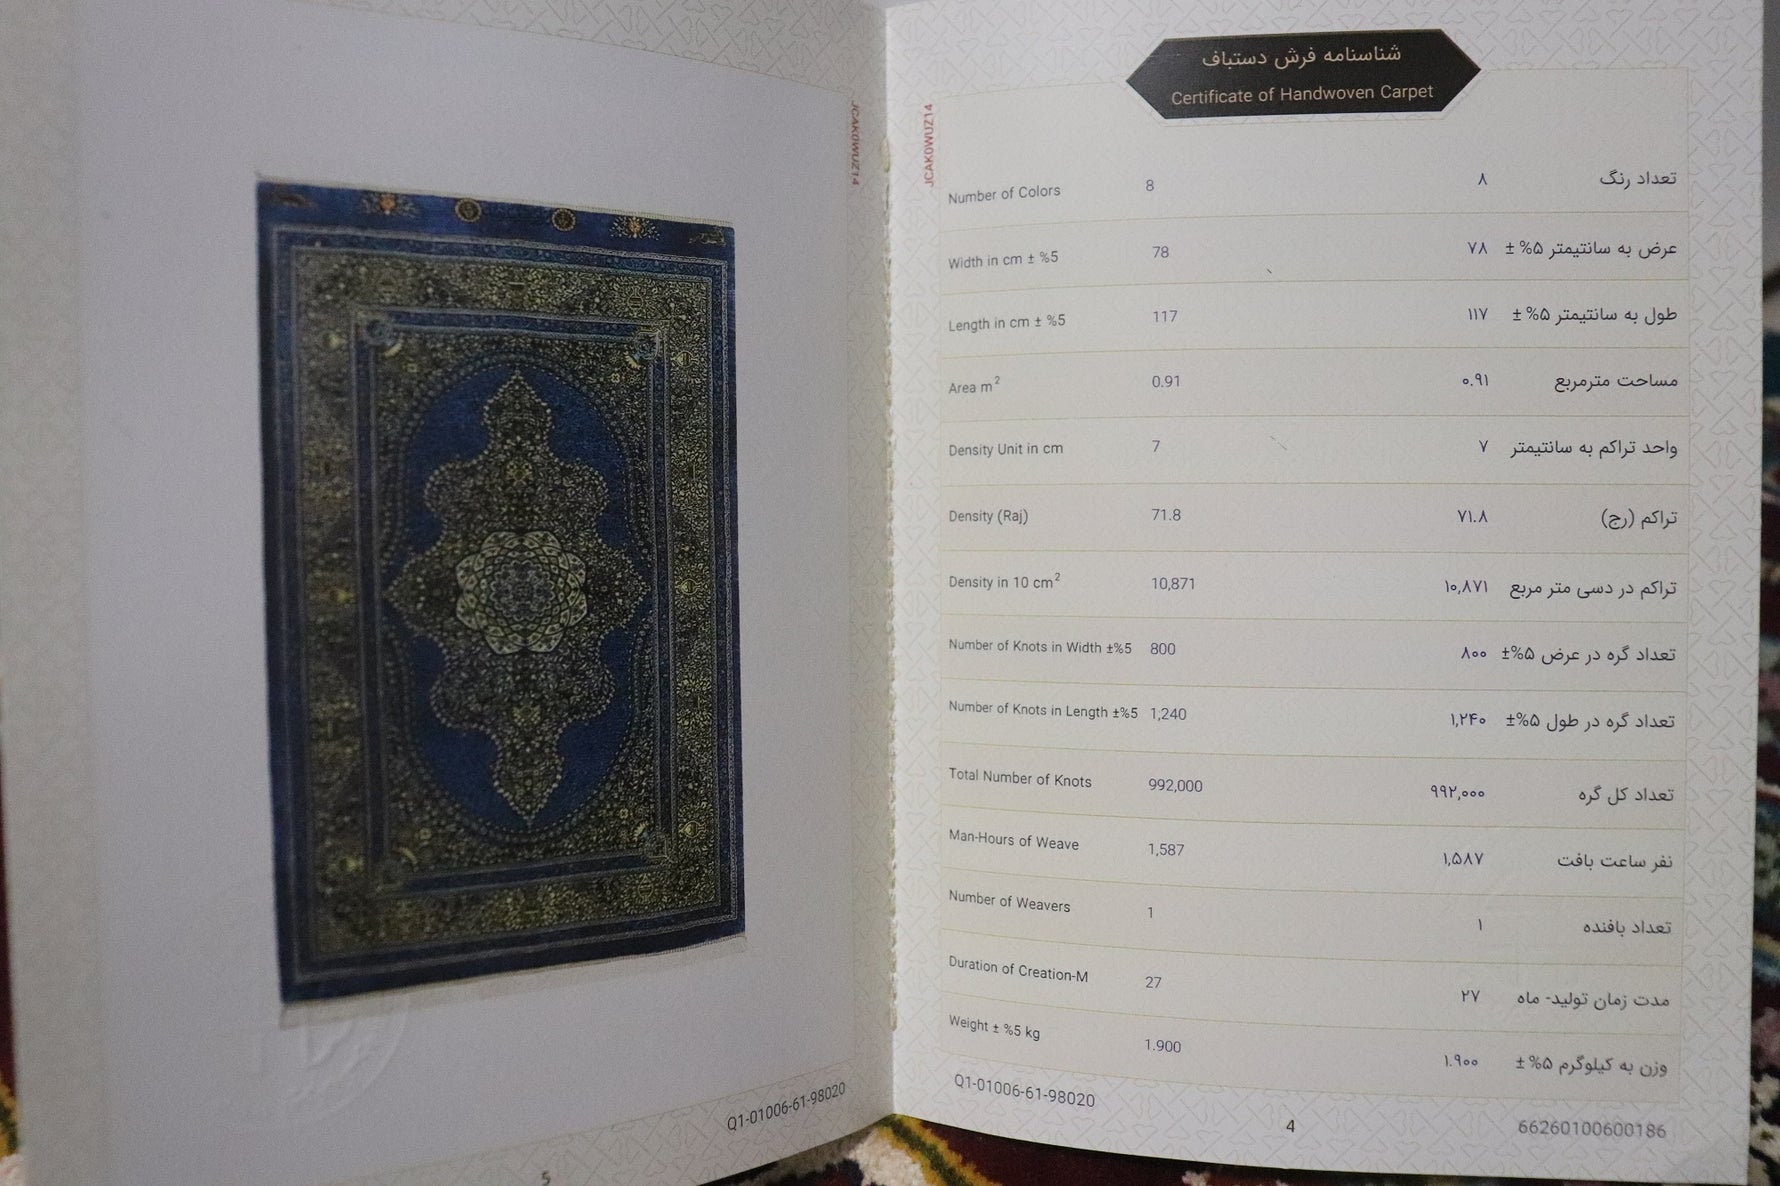 JCAK0WUZ14
Q1-01006-61-98020
5
JCAK0WUZ14
شناسنامه فرش دستباف
Certificate of Handwoven Carpet
Number of Colors 8 ۸ تعداد رنگ
Width in cm ± %5 78 ۷۸ عرض به سانتیمتر ۵% ±
Length in cm ± %5 117 ۱۱۷ طول به سانتیمتر ۵% ±
Area m² 0.91 ۰.۹۱ مساحت مترمربع
Density Unit in cm 7 ۷ واحد تراکم به سانتیمتر
Density (Raj) 71.8 ۷۱.۸ تراکم (رج)
Density in 10 cm² 10,871 ۱۰,۸۷۱ تراکم در دسی متر مربع
Number of Knots in Width ±%5 800 ۸۰۰ تعداد گره در عرض ۵%±
Number of Knots in Length ±%5 1,240 ۱,۲۴۰ تعداد گره در طول ۵%±
Total Number of Knots 992,000 ۹۹۲,۰۰۰ تعداد کل گره
Man-Hours of Weave 1,587 ۱,۵۸۷ نفر ساعت بافت
Number of Weavers 1 ۱ تعداد بافنده
Duration of Creation-M 27 ۲۷ مدت زمان تولید- ماه
Weight ± %5 kg 1.900 ۱.۹۰۰ وزن به کیلوگرم ۵% ±
Q1-01006-61-98020
4
66260100600186